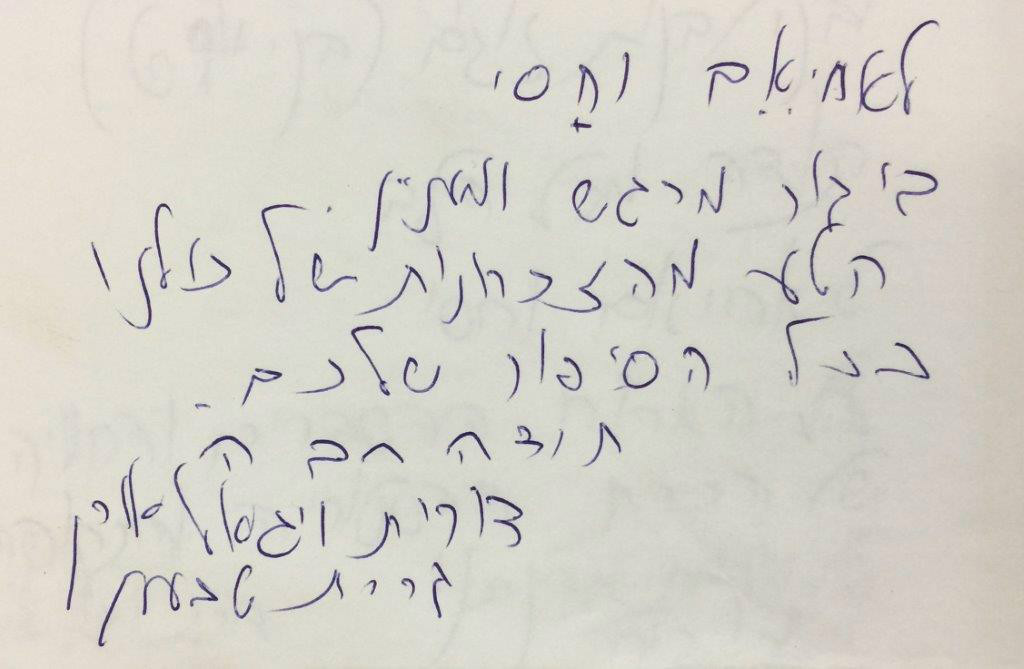 לאחיאם וחסי
ביקור מרגש ומעניין
הטע מהזכרונות של כולנו
בכל הסיפור שלכם.
תודה רבה
דורית ויגאל
קרית טבעון